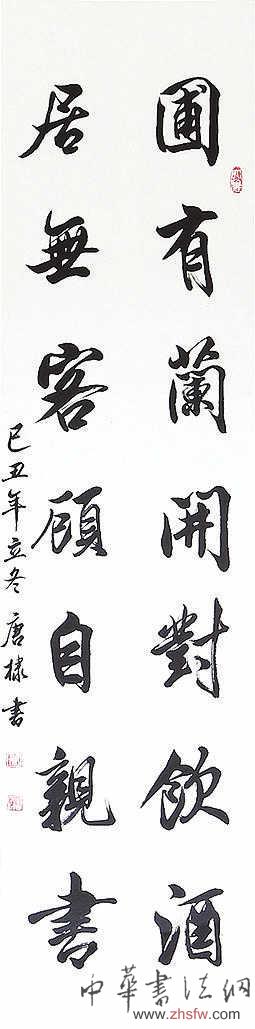 圃有蘭開對飲酒
居無客顧自親書
己丑年立冬 唐棣書
中華書法網
www.zhsfw.com